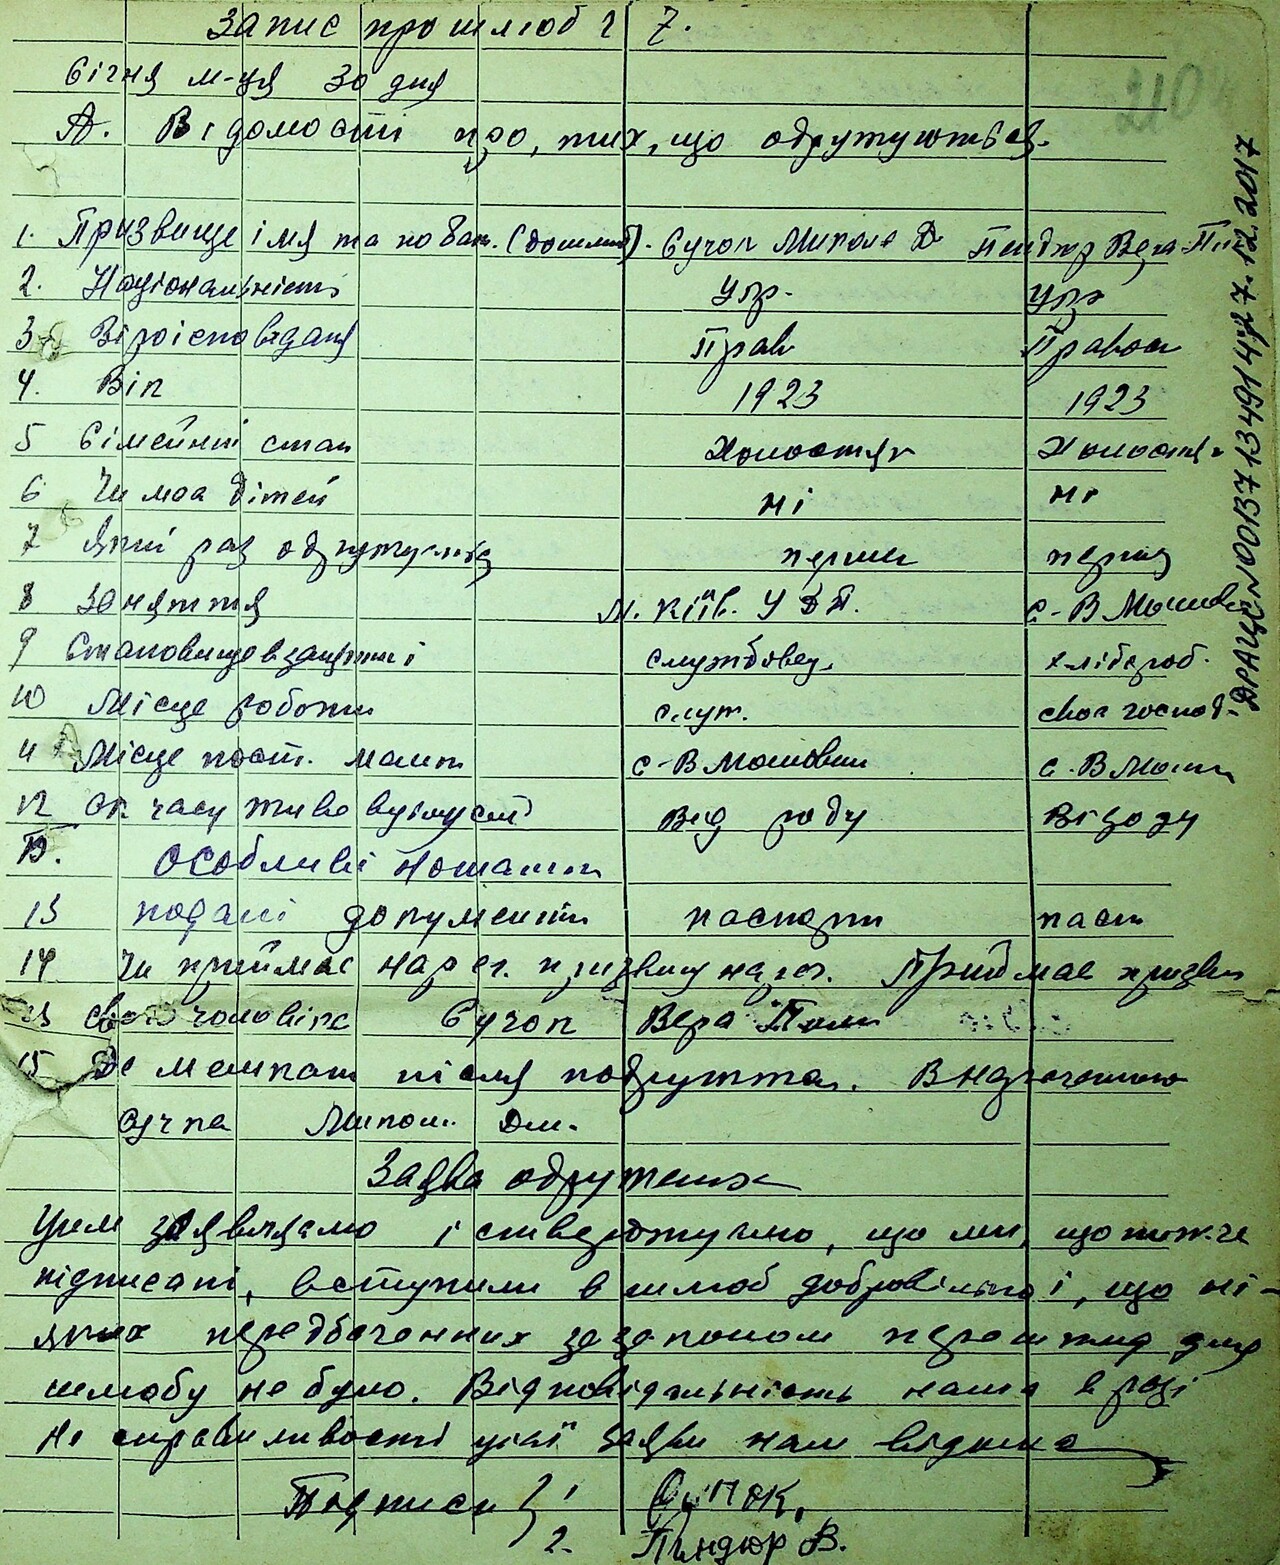 Запис про шлюб ч 7.
Січня м-ця 30 дня
210
А. Відомости про, тих, що одружуються.
1. Призвище імя та по бат. (до шлюб). Сучок Микола Д Пиндюр Вера Пил
2. Національність Укр. укр
3 Віроісповідання Прав Правос
4. Вік 1923 1923
5 Сімейний стан Холостяк Холостяк
6 Чи має дітей ні ні
7 Який раз одружується перший перший
8 Заняття м. Київ. У с-В Мошовка
9 Становище в занятті службовец. хлібороб.
10 Місце роботи служ. своє господ.
11 Місце пост. мешк с-В Мошовки с. В Мош
12 Як. часу живе в цій усті Від роду Від роду
В. Особливі нотатки
13 подані документи паспорти пасп
14 Чи приймає нареч. призвищ нареч. Приймає призви
свого чоловіка Сучок Вера Пили
15 Де мешкат після подружжа. В наречоного
Сучка Микол. Дм.
Заява одружених
Цим заявляємо і стверджуємо, що ми, що нижче
підписані, вступили в шлюб добровільно і, що ні-
яких передбаченних за законом перешкод для
шлюбу не було. Відповідальність наша в разі
не справиливості цієї заяви нам відома
Подписи } 1.
2. Пиндюр В.
ДРАЦС N00137134914 від 27.12.2017